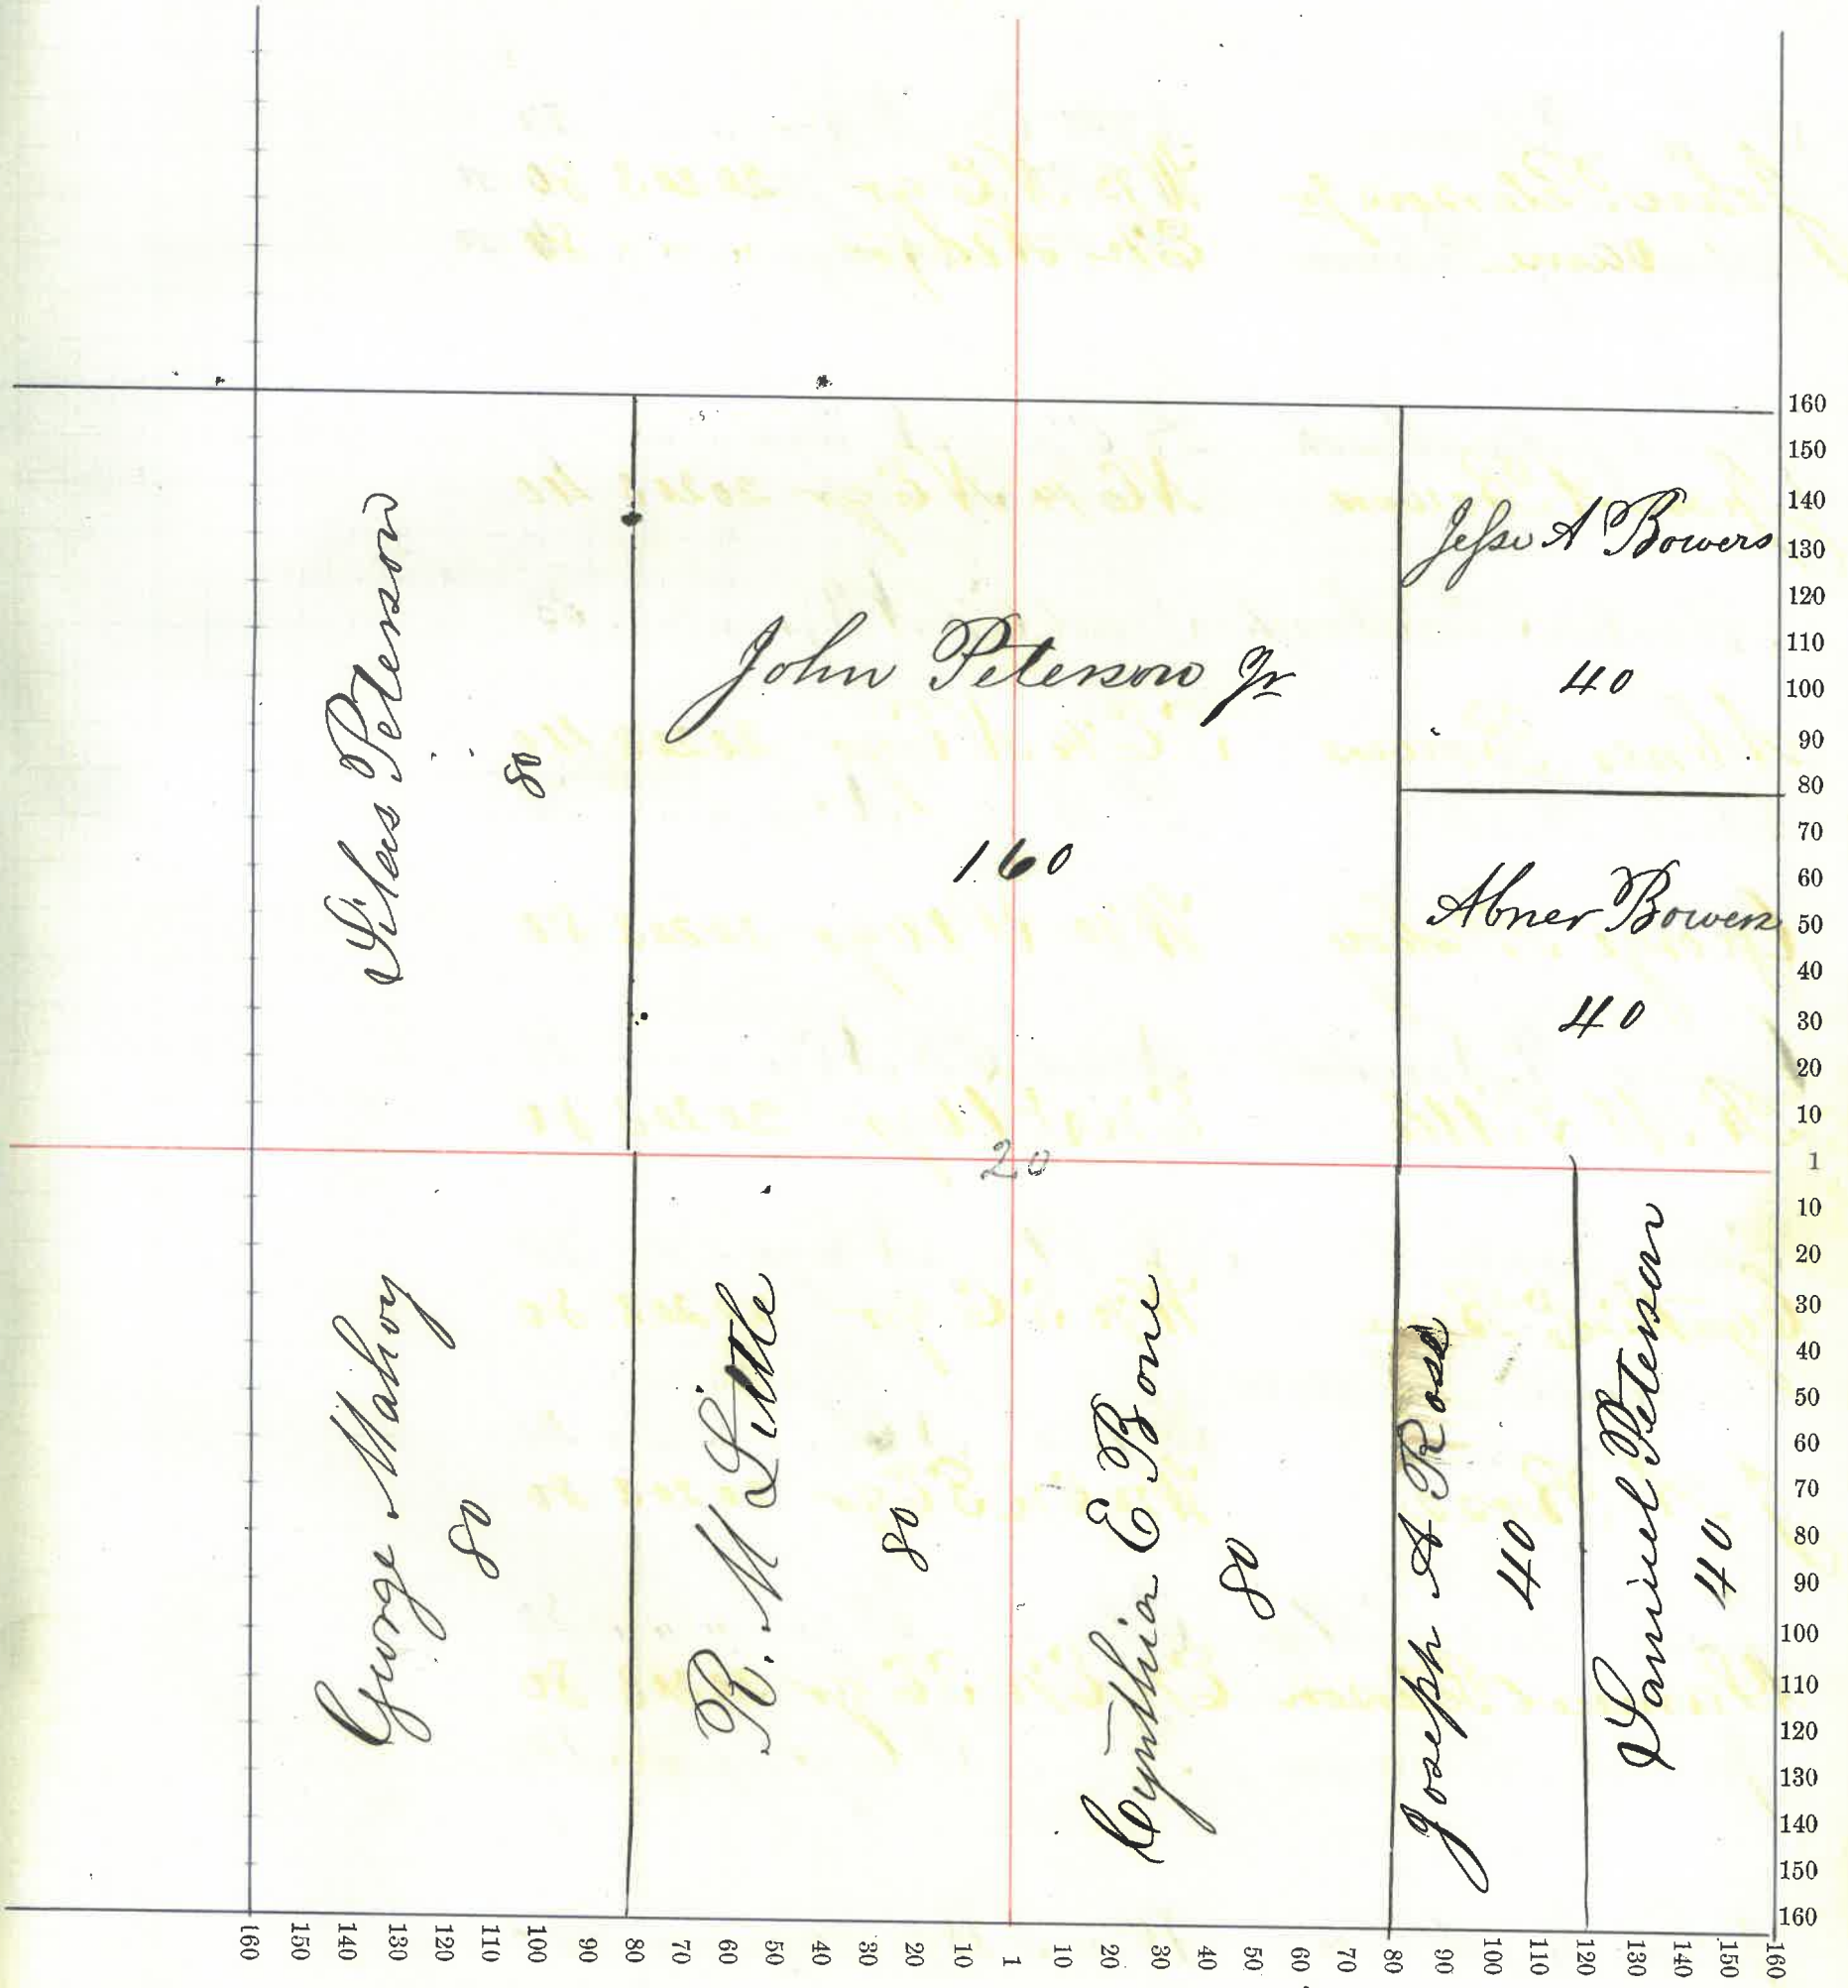 Silas Peterson
80
John Peterson Jr
160
Jesse A Bowers
40
Abner Bowers
40
20
George Mahoy
80
R. M Little
80
Cynthia E Bone
80
Joseph A Ross
40
Samuel Peterson
40
160
150
140
130
120
110
100
90
80
70
60
50
40
30
20
10
1
10
20
30
40
50
60
70
80
90
100
110
120
130
140
150
160
160 150 140 130 120 110 100 90 80 70 60 50 40 30 20 10 1 10 20 30 40 50 60 70 80 90 100 110 120 130 140 150 160